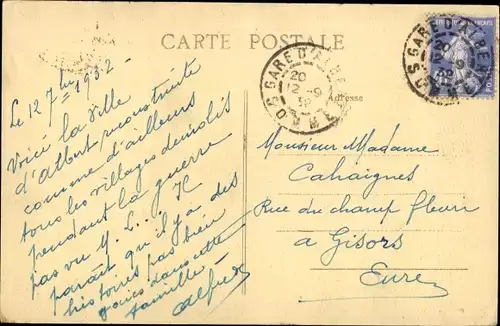 CARTE POSTALE
Le 12 7bre 1932
Voici la ville
d'Albert reconstruite
comme d'ailleurs
tous les villages demolis
pendant la guerre
pas vu M. L. . Il
parait qu'il y a des
histoires pas bien
gaies dans cette
famille.
Alfred
GARE D'ALBERT
20
12 - 9
32
SOMME
Adresse
Monsieur Madame
Cahaignes
Rue du champ fleuri
a Gisors
Eure
GARE D'ALBERT
20
12 - 9
32
SOMME